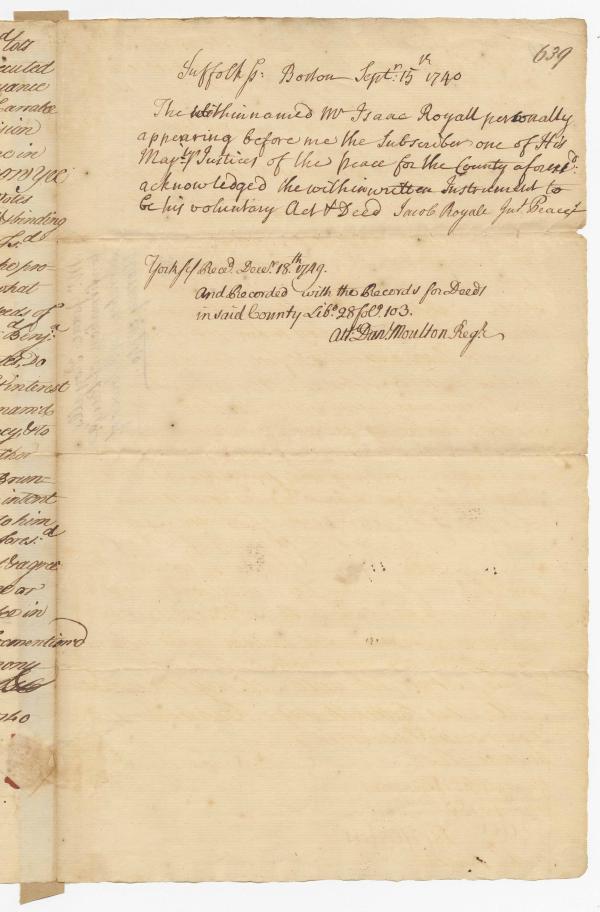 639
Suffolk ss: Boston Septr. 15th 1740
The withinnamed Mr Isaac Royall personally
appearing before me the Subscriber one of His
Majtys Justices of the peace for the County aforesd:
acknowledged the within written Instrument to
be his voluntary Act & Deed Jacob Royale Just Peace
York ss Recd. Decer. 18th. 1749.
And Recorded with the Records for Deeds
in said County Libo. 28 folo. 103.
Attr. Danl. Moulton Regr.
told
ecuted
vance
Carrabe
ision
ee in
binding
he pro
what
eeds of
Benja
Do
interest
namd
cy, & to
ther
Brun=
intent
to him
fores:d
& agree
ee or
ee in
ementiond
mony
740